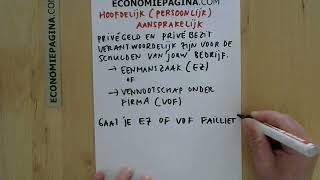 ECONOMIEPAGINA.COM
HOOFDELIJK (PERSOONLIJK)
AANSPRAKELIJK
PRIVÉGELD EN PRIVÉ BEZIT
VERANTWOORDELIJK ZIJN VOOR DE
SCHULDEN VAN JOUW BEDRIJF.
→ EENMANSZAAK (EZ)
OF
→ VENNOOTSCHAP ONDER
FIRMA (VOF)
GAAT JE EZ OF VOF FAILLIET
ECONOMIEPAGINA.COM